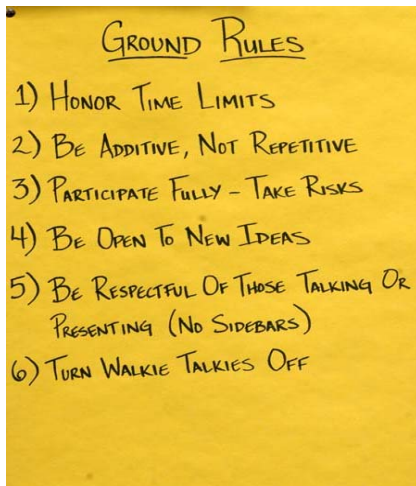 GROUND RULES
1) HONOR TIME LIMITS
2) BE ADDITIVE, NOT REPETITIVE
3) PARTICIPATE FULLY - TAKE RISKS
4) BE OPEN TO NEW IDEAS
5) BE RESPECTFUL OF THOSE TALKING OR
PRESENTING (NO SIDEBARS)
6) TURN WALKIE TALKIES OFF